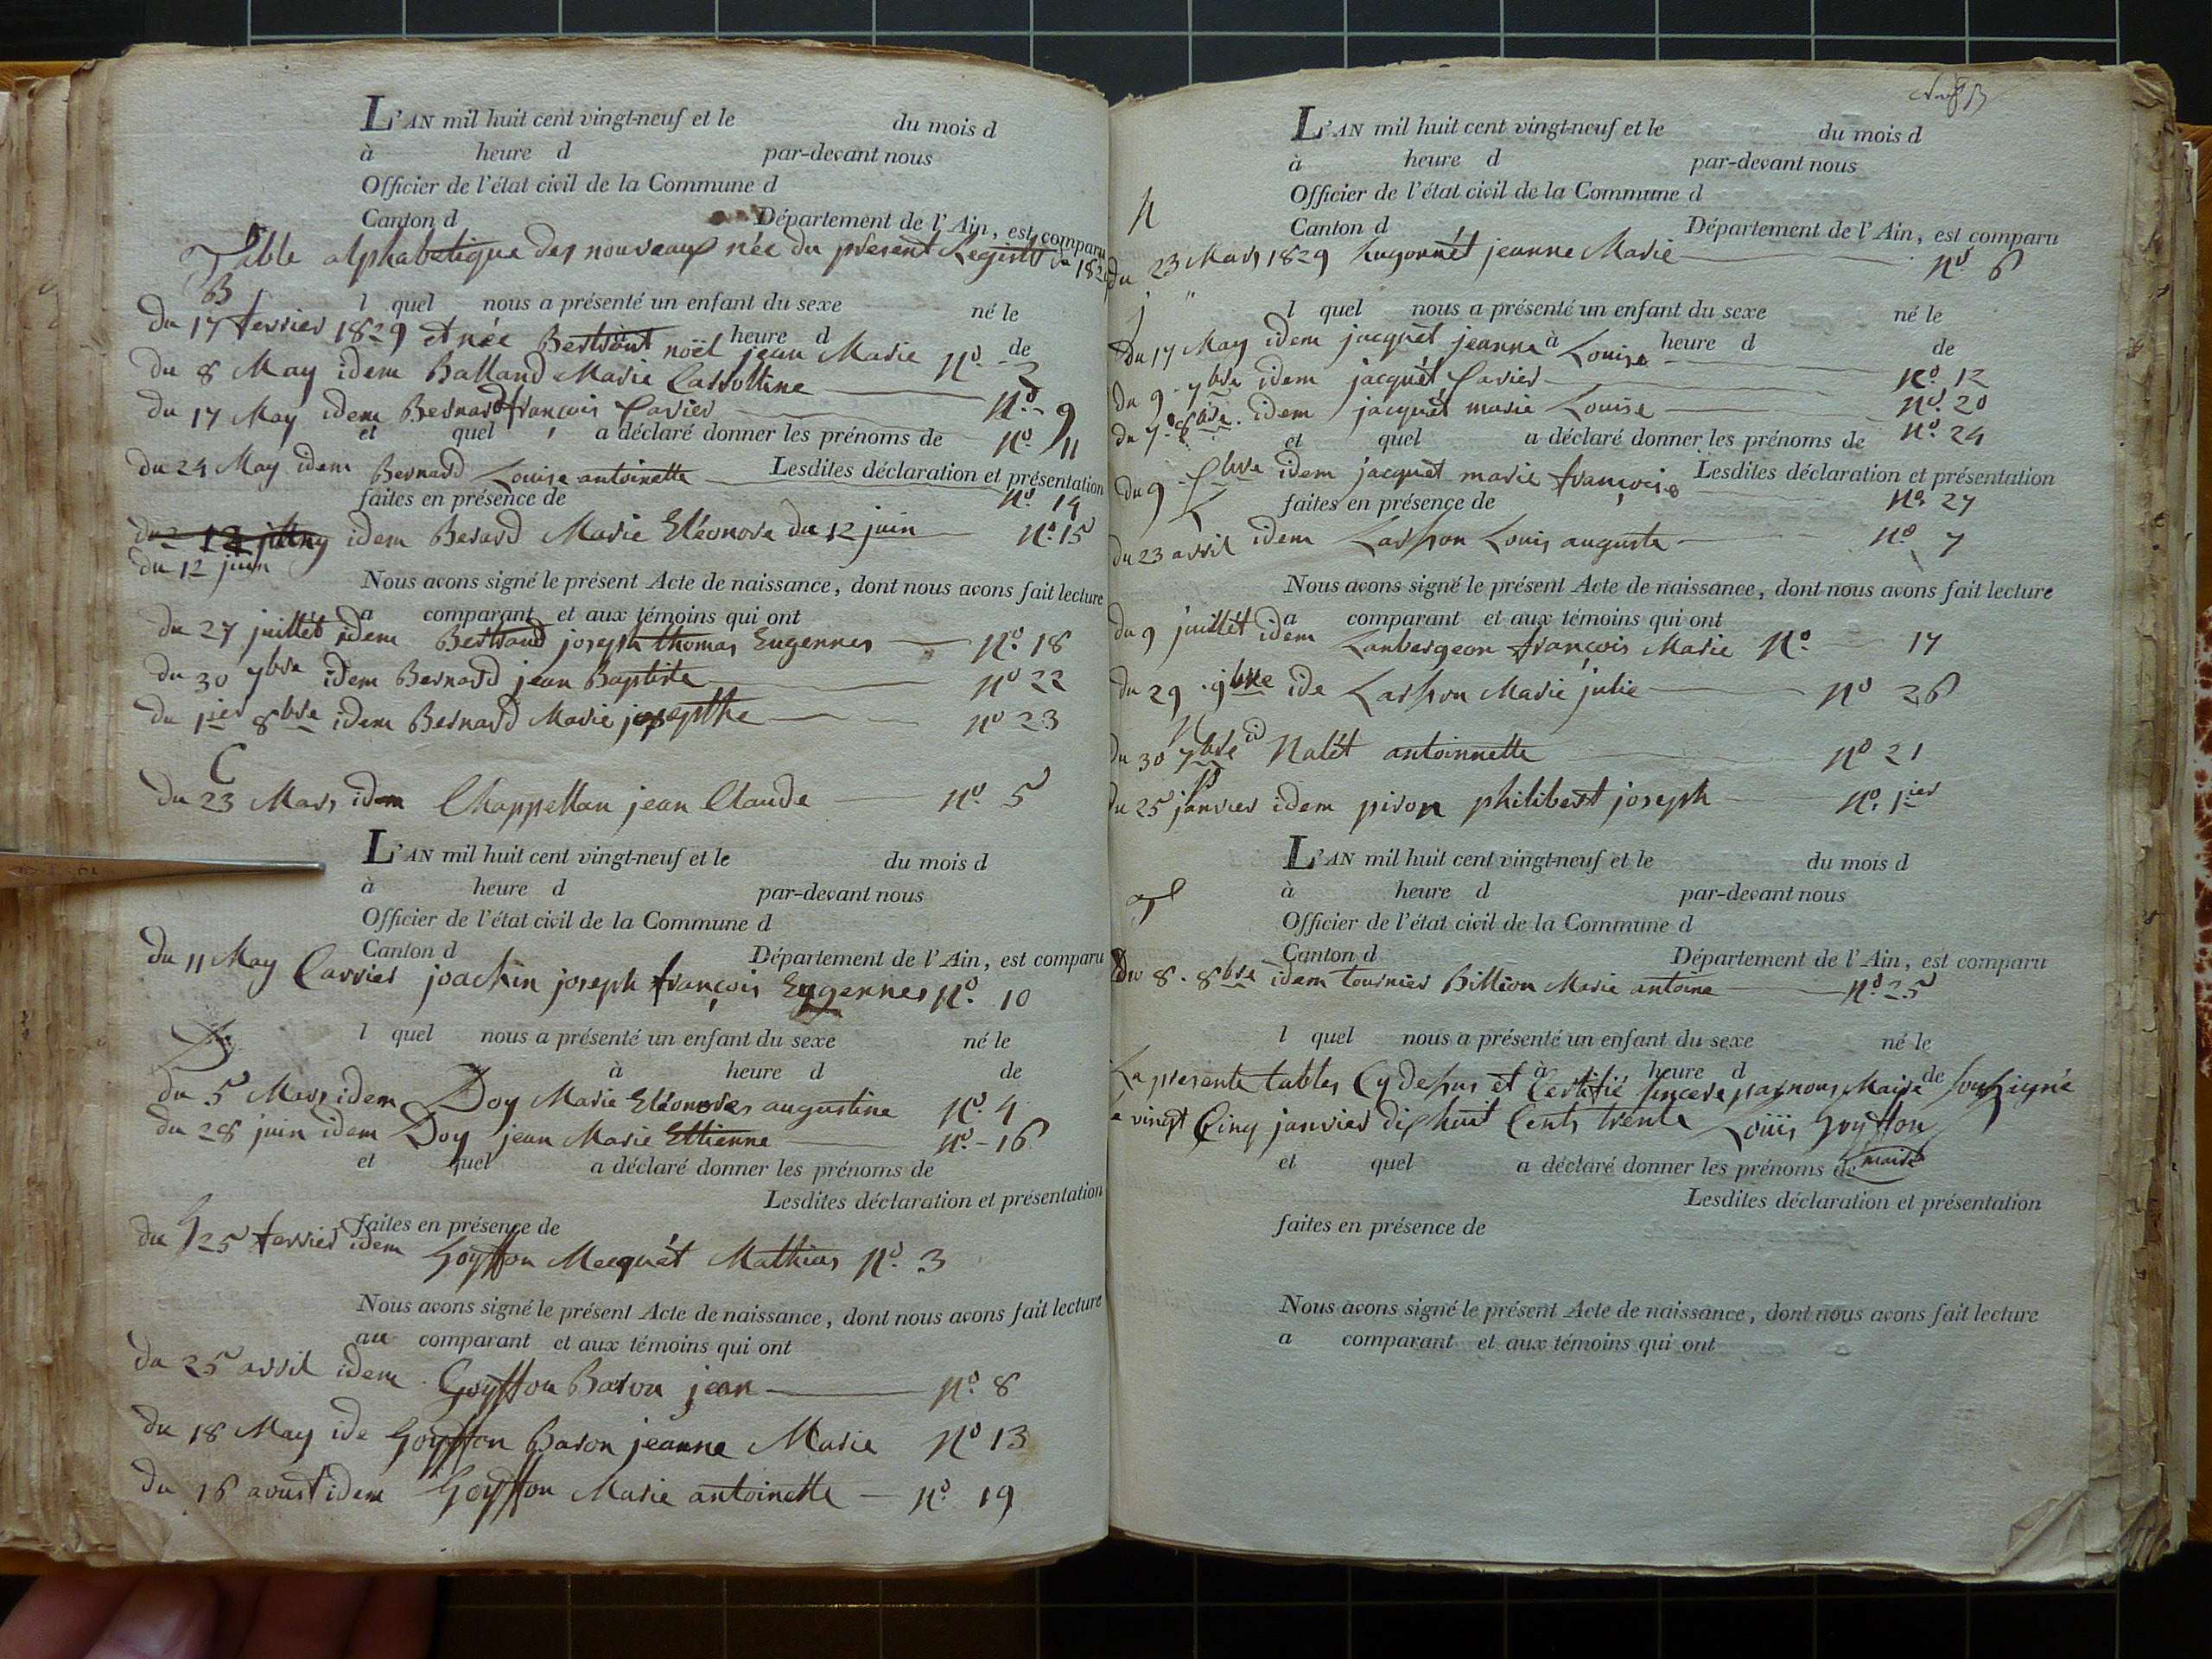 L'AN mil huit cent vingt-neuf et le du mois d
à heure d par-devant nous
Officier de l'état civil de la Commune d
Canton d Département de l'Ain, est comparu
Table alphabetique des nouveaux née du present Registre de 1829
B
l quel nous a présenté un enfant du sexe né le
du 17 fevrier 1829 et née Bertrant noël jean Marie N.o 2
heure d de
du 8 May idem Balland Marie Carroltine N.o 9
du 17 May idem Bernard françois Cavier N.o 11
et quel a déclaré donner les prénoms de
du 24 May idem Bernard Louise antoinette N.o 14
Lesdites déclaration et présentation
faites en présence de
idem Berard Marie Eléonore du 12 juin N.o 15
du 12 juin
Nous avons signé le présent Acte de naissance, dont nous avons fait lecture
a comparant et aux témoins qui ont
du 27 juillét idem Bertrand joseph thomas Eugennes N.o 18
du 30 7bre idem Bernard jean Baptiste N.o 22
du 1ier 8bre idem Bernard Marie josepthe N.o 23
C
du 23 Mars idem Chappellan jean Claude N.o 5
L'AN mil huit cent vingt-neuf et le du mois d
à heure d par-devant nous
Officier de l'état civil de la Commune d
Canton d Département de l'Ain, est comparu
du 11 May Carrier joachin joseph françois Eugennes N.o 10
D
l quel nous a présenté un enfant du sexe né le
à heure d de
du 5 Mars idem Doy Marie Eléonores augustine N.o 4
du 28 juin idem Doy jean Marie Ettienne N.o 16
et quel a déclaré donner les prénoms de
Lesdites déclaration et présentation
faites en présence de
G
du 25 fevrier idem Goyffon Mecquét Mathias N.o 3
Nous avons signé le présent Acte de naissance, dont nous avons fait lecture
au comparant et aux témoins qui ont
du 25 avril idem Goyffon Baron jean N.o 8
du 18 May ide Goyffon Baron jeanne Marie N.o 13
du 16 aoust idem Goyffon Marie antoinette N.o 19
L'AN mil huit cent vingt-neuf et le du mois d
à heure d par-devant nous
Officier de l'état civil de la Commune d
H
Canton d Département de l'Ain, est comparu
du 23 Mars 1829 hugonnét jeanne Marie N.o 6
j
l quel nous a présenté un enfant du sexe né le
à heure d de
du 17 May idem jacquét jeanne Louise N.o 12
du 9 7bre idem jacquét Cavier N.o 20
du 7 8bre idem jacquét marie Louise N.o 24
et quel a déclaré donner les prénoms de
Lesdites déclaration et présentation
du 9 Xbre idem jacquet marie françoise N.o 27
faites en présence de
L
du 23 avril idem Lasson Louis auguste N.o 7
Nous avons signé le présent Acte de naissance, dont nous avons fait lecture
a comparant et aux témoins qui ont
du 9 juillét idem Lanbergeon françois Marie N.o 17
du 29 9bre ide Lasson Marie julie N.o 26
N
du 30 7bre id Nalét antoinnette N.o 21
p
du 25 janvier idem piron philibert joseph N.o 1ier
L'AN mil huit cent vingt-neuf et le du mois d
à heure d par-devant nous
T
Officier de l'état civil de la Commune d
Canton d Département de l'Ain, est comparu
Du 8 8bre idem tournier Billion Marie antoine N.o 25
l quel nous a présenté un enfant du sexe né le
à heure d de
La presente tables Cy dessus et Certifié sincere par nous Maire soussigné
le vingt Cinq janvier dix huit Cents trente Loüis Goyffon
maire
et quel a déclaré donner les prénoms de
Lesdites déclaration et présentation
faites en présence de
Nous avons signé le présent Acte de naissance, dont nous avons fait lecture
a comparant et aux témoins qui ont